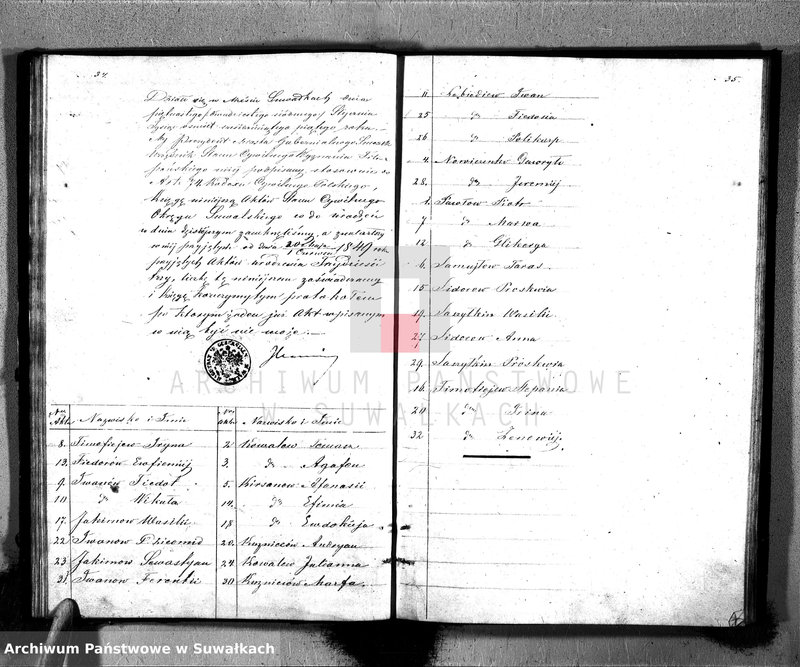 34
Działo się w Mieście Suwałkach dnia
piętnastego (dwudziestego siódmego) Stycznia
tysiąc ośmset pięćdziesiątego roku
My Prezydent Miasta Gubernialnego Suwałk
Urzędnik Stanu Cywilnego Wyznania
niżej podpisany, stosownie do
Art. 74. Kodexu Cywilnego Polskiego,
Księgę niniejszą Aktów Stanu Cywilnego
Okręgu Suwalskiego co do urodzeń
w dniu dzisiejszym zamknęliśmy, a znalazłszy
w niej przyjętych od dnia 20 Maja / 1 Czerwca 1849 roku
przyjętych Aktów urodzenia Trzydzieści
trzy, liczbę tę niniejszem zaświadczamy
i księgę kończymy tym protokołem
po którym żaden już Akt wpisanym
w nią być nie może.
No Aktu Nazwisko i Imie No aktu Nazwisko i Imie
8. Timofiejew Iryna 2. Kowalew
13. Fiedorów Ewfiemiij 3. do Agafon
9. Iwanów Fiedot 5. Kirsanow Afanasii
10 do Mikita 14. do Efimia
17. Jakimow Wasili 18 do Ewdokieja
22 Iwanow 20. Kuznieców Andryan
23 Jakimow Sewastyan 24. Kowalew Julianna
31. Iwanow Feronti 30 Kuznieców Marfa
35.
11 Lebiediew Iwan
25 do Fiedosia
26 do Polikarp
4. Nowiczenko
28. do Jeremiij
1. Pawłow Piotr
7 do Marwa
12 do Glikerya
6 Samujłow Taras
15 Sidorow Proskwia
19. Sarytkin Wasili
27 Sidorow Anna
29. Sarytkin Proskwia
16. Timofiejew Stepania
21 do Irina
32 do Zenowiij
ARCHIWUM PAŃSTWOWE
W SUWAŁKACH
Archiwum Państwowe w Suwałkach